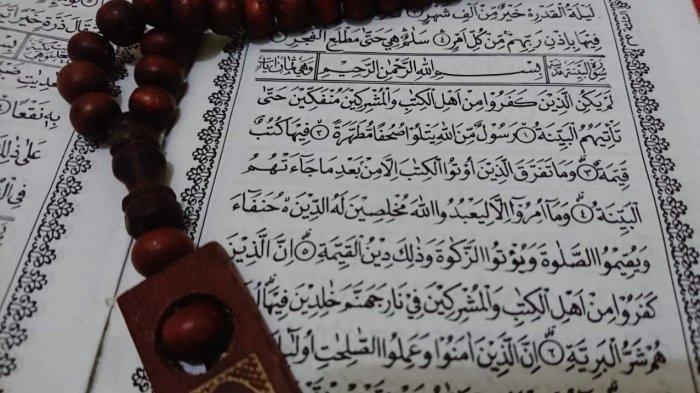 لَيْلَةُ الْقَدْرِ خَيْرٌ مِّنْ اَلْفِ شَهْرٍ
فِيْهَا بِاِذْنِ رَبِّهِمْ مِّنْ كُلِّ اَمْرٍ ٤ سَلٰمٌ هِيَ حَتّٰى مَطْلَعِ الْفَجْرِ
سُوْرَةُ الْبَيِّنَةِ بِسْمِ اللّٰهِ الرَّحْمٰنِ الرَّحِيْمِ وَهِيَ ثَمَانُ اٰيَاتٍ
لَمْ يَكُنِ الَّذِيْنَ كَفَرُوْا مِنْ اَهْلِ الْكِتٰبِ وَالْمُشْرِكِيْنَ مُنْفَكِّيْنَ حَتّٰى
تَأْتِيَهُمُ الْبَيِّنَةُ ١ رَسُوْلٌ مِّنَ اللّٰهِ يَتْلُوْا صُحُفًا مُّطَهَّرَةً ٢ فِيْهَا كُتُبٌ
قَيِّمَةٌ ٣ وَمَا تَفَرَّقَ الَّذِيْنَ اُوْتُوا الْكِتٰبَ اِلَّا مِنْ بَعْدِ مَا جَآءَتْهُمُ
الْبَيِّنَةُ ٤ وَمَآ اُمِرُوْٓا اِلَّا لِيَعْبُدُوا اللّٰهَ مُخْلِصِيْنَ لَهُ الدِّيْنَ حُنَفَآءَ
وَيُقِيْمُوا الصَّلٰوةَ وَيُؤْتُوا الزَّكٰوةَ وَذٰلِكَ دِيْنُ الْقَيِّمَةِ ٥ اِنَّ الَّذِيْنَ
كَفَرُوْا مِنْ اَهْلِ الْكِتٰبِ وَالْمُشْرِكِيْنَ فِيْ نَارِ جَهَنَّمَ خٰلِدِيْنَ فِيْهَا
هُمْ شَرُّ الْبَرِيَّةِ ٦ اِنَّ الَّذِيْنَ اٰمَنُوْا وَعَمِلُوا الصّٰلِحٰتِ
قَالَ ذَرَّةٍ خَيْرًا
بِهٖ نَقْعًا
عَلٰى ذٰلِكَ